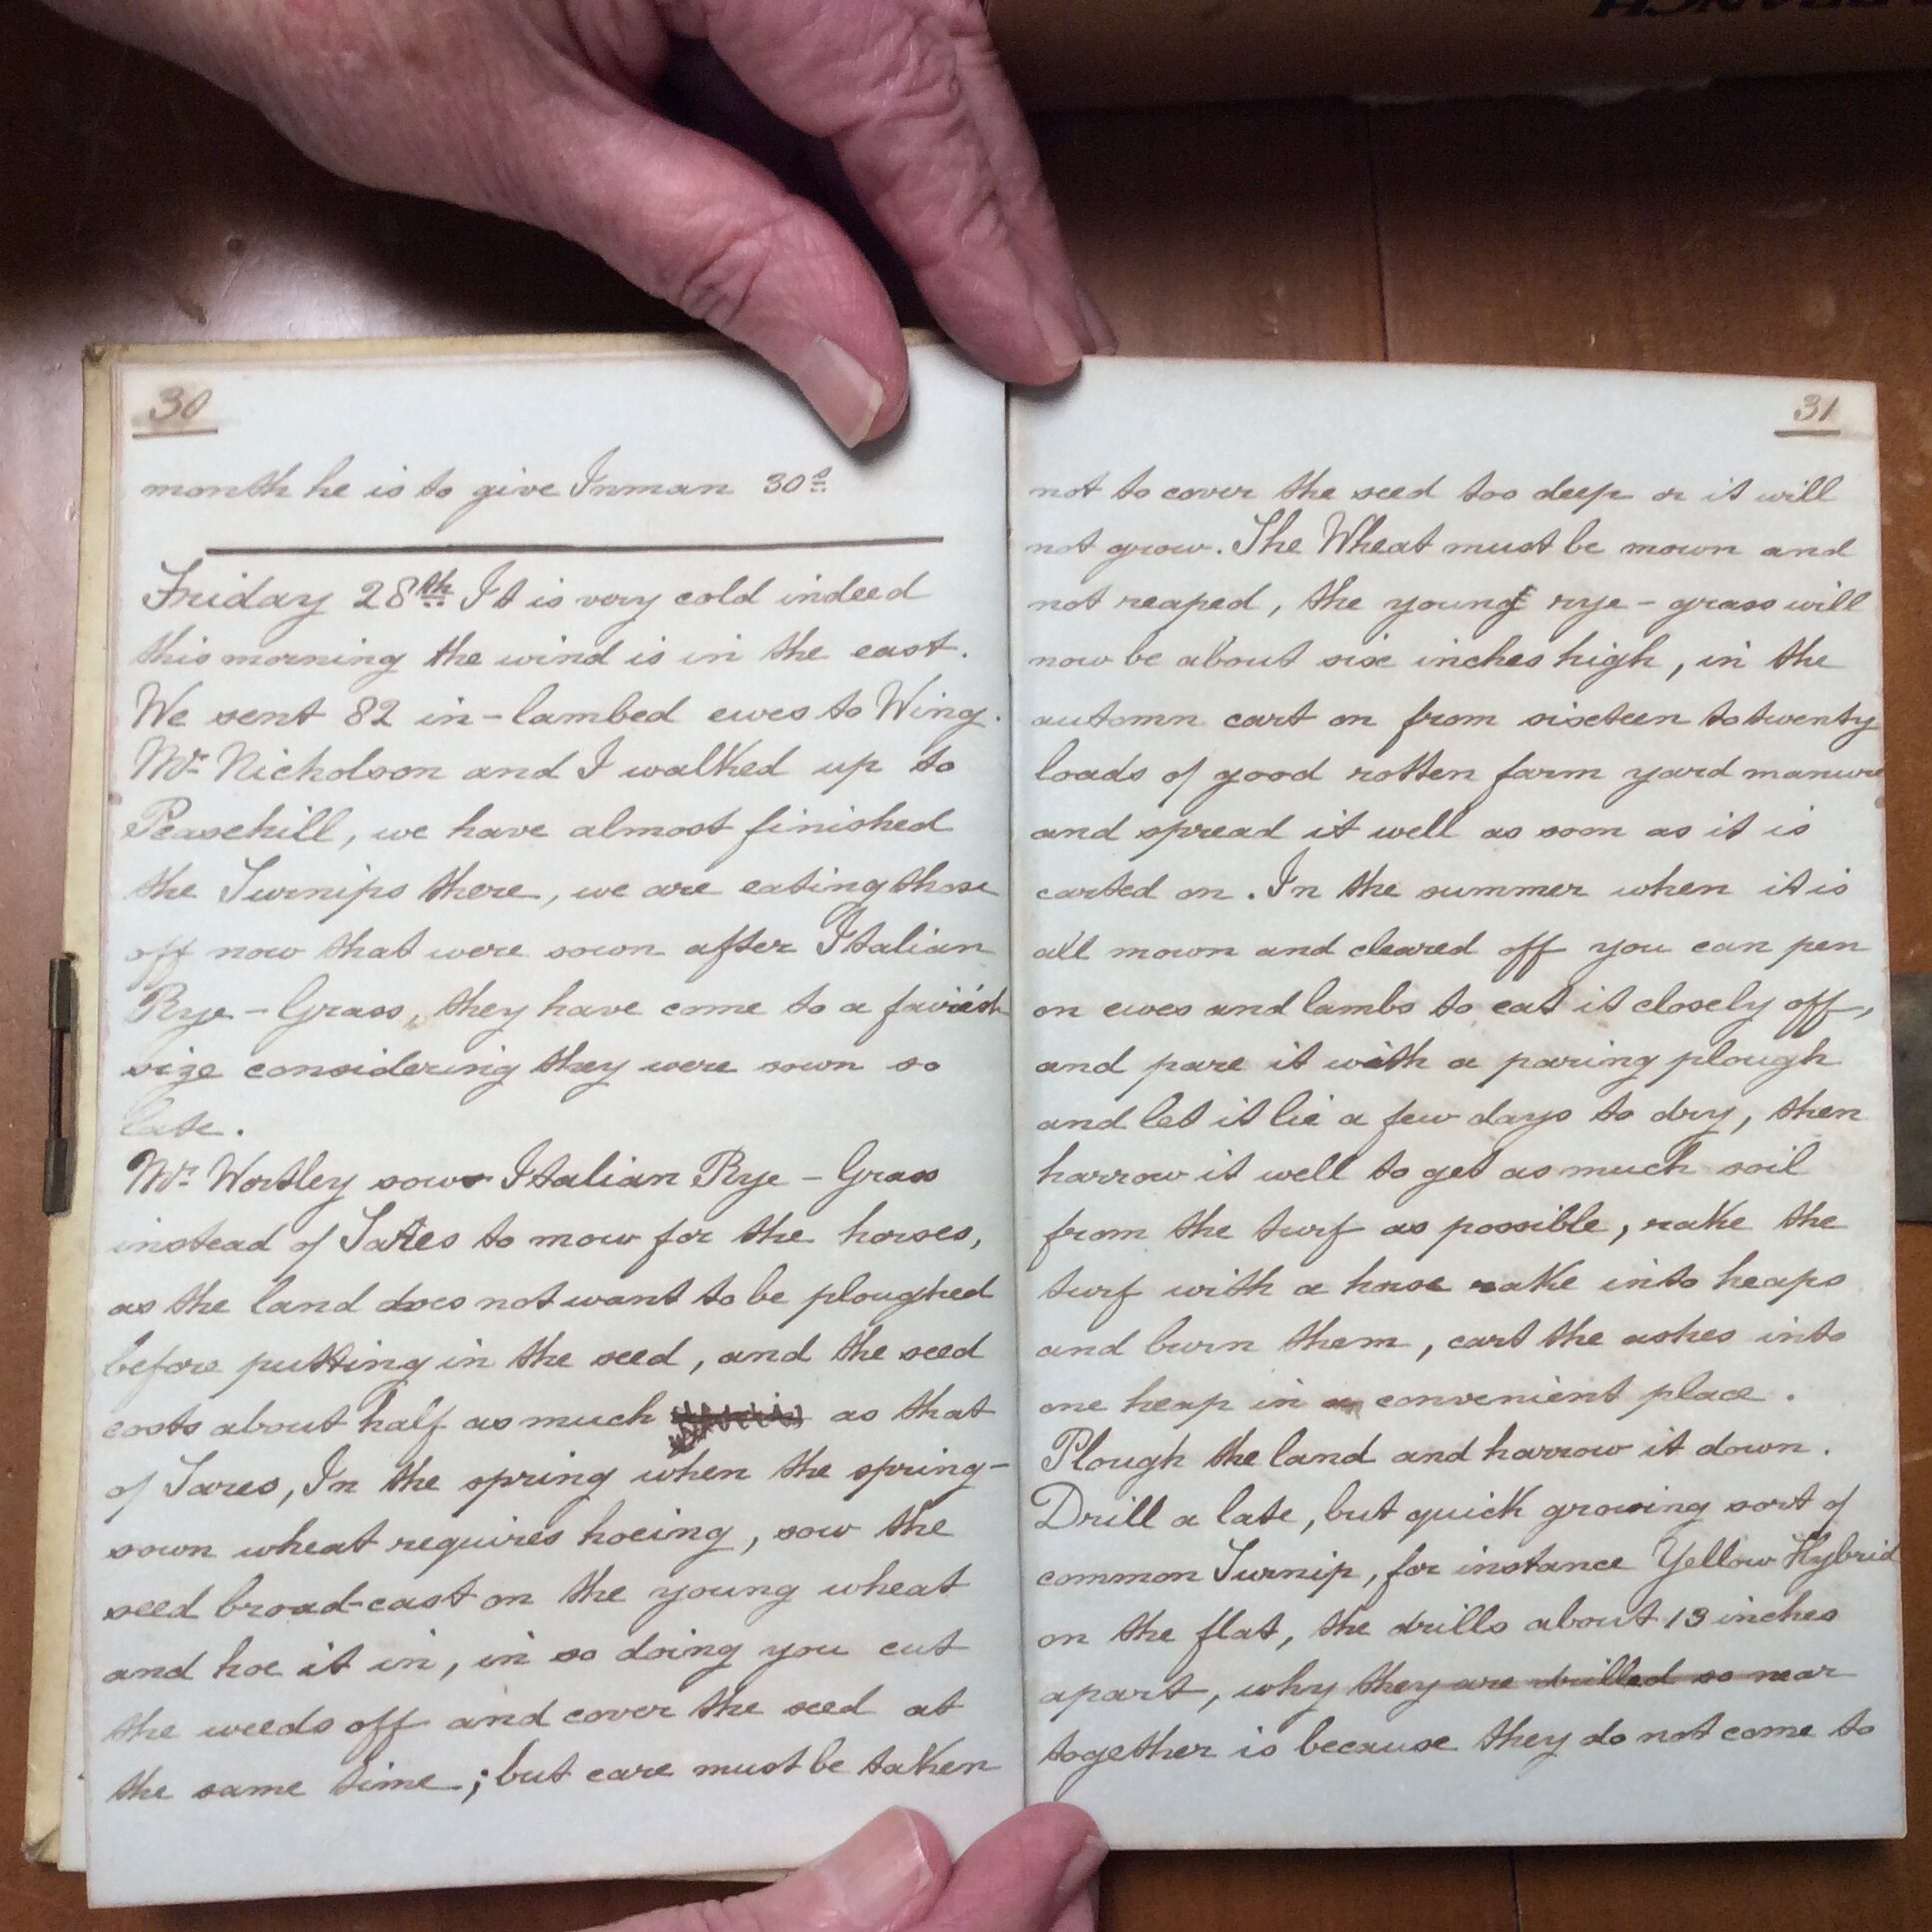 30
month he is to give Inman 30s.
Friday 28th It is very cold indeed
this morning the wind is in the east.
We sent 82 in-lambed ewes to Wing.
Mr. Nicholson and I walked up to
Peasehill, we have almost finished
the Turnips there, we are eating those
off now that were sown after Italian
Rye-Grass, they have come to a fairish
size considering they were sown so
late.
Mr. Wortley sows Italian Rye-Grass
instead of Tares to mow for the horses,
as the land does not want to be ploughed
before putting in the seed, and the seed
costs about half as much as that
of Tares, In the spring when the spring-
sown wheat requires hoeing, sow the
seed broad-cast on the young wheat
and hoe it in, in so doing you cut
the weeds off and cover the seed at
the same time; but care must be taken
31
not to cover the seed too deep or it will
not grow. The Wheat must be mown and
not reaped, the young rye-grass will
now be about six inches high, in the
automn cart on from sixteen to twenty
loads of good rotten farm yard manure
and spread it well as soon as it is
carted on. In the summer when it is
all mown and cleared off you can pen
on ewes and lambs to eat it closely off,
and pare it with a paring plough
and let it lie a few days to dry, then
harrow it well to get as much soil
from the turf as possible, rake the
turf with a horse rake into heaps
and burn them, cart the ashes into
one heap in a convenient place.
Plough the land and harrow it down.
Drill a late, but quick growing sort of
common Turnip, for instance Yellow Hybrid
on the flat, the drills about 13 inches
apart, why they are drilled so near
together is because they do not come to